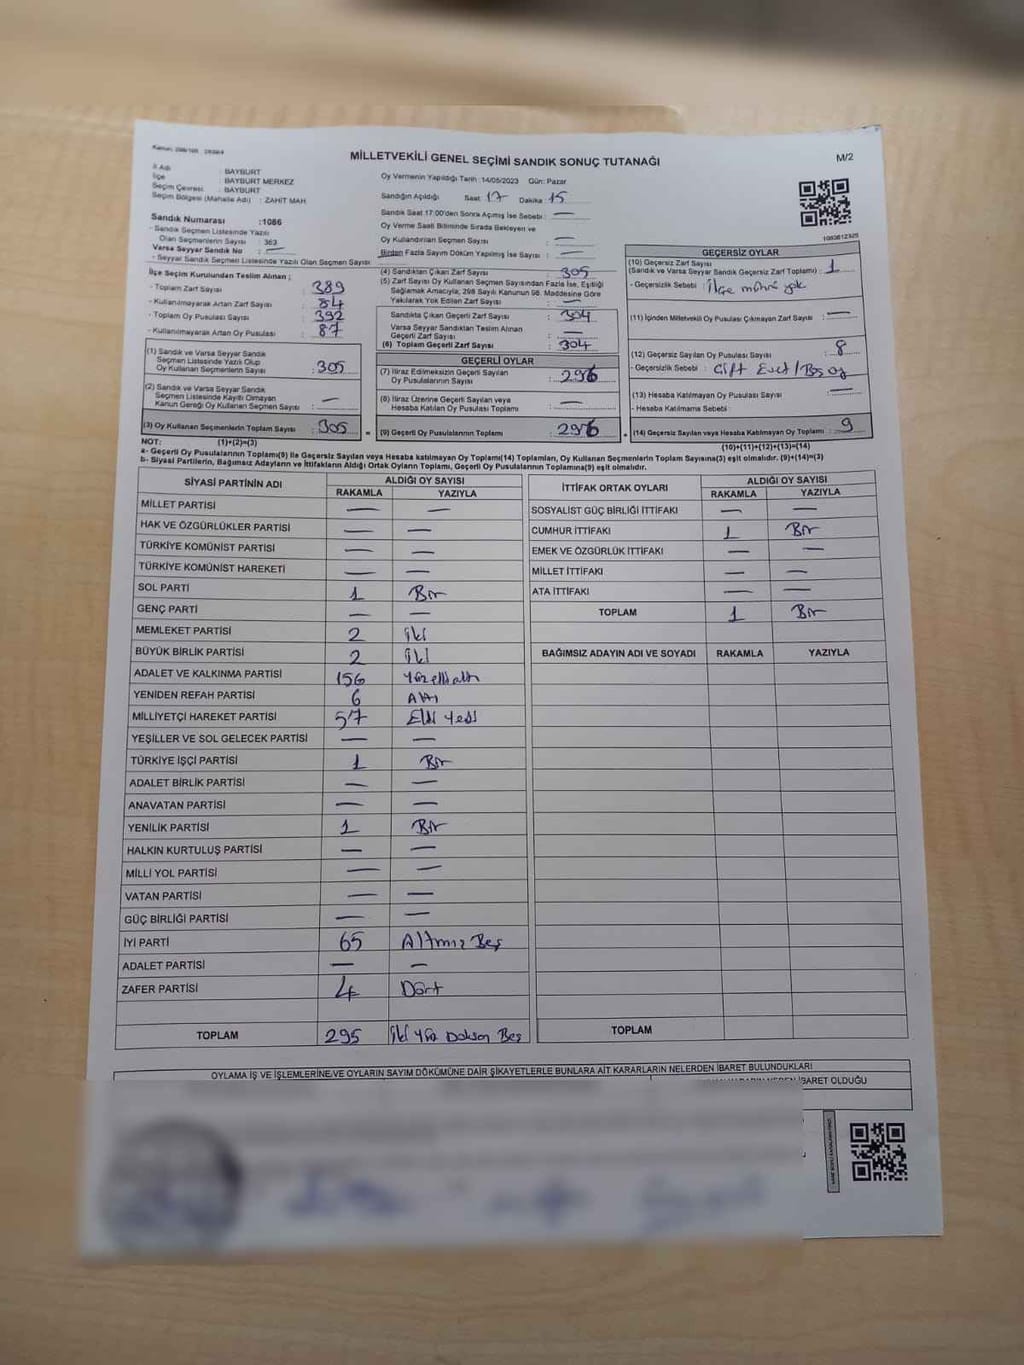 MİLLETVEKİLİ GENEL SEÇİMİ SANDIK SONUÇ TUTANAĞI
M/2
İl Adı : BAYBURT
İlçe : BAYBURT MERKEZ
Seçim Çevresi : BAYBURT
Seçim Bölgesi (Mahalle Adı) : ZAHİT MAH.
Sandık Numarası :1086
- Sandık Seçmen Listesinde Yazılı
Olan Seçmenlerin Sayısı : 363
Varsa Seyyar Sandık No : —
- Seyyar Sandık Seçmen Listesinde Yazılı Olan Seçmen Sayısı
İlçe Seçim Kurulundan Teslim Alınan ;
- Toplam Zarf Sayısı : 389
- Kullanılmayarak Artan Zarf Sayısı : 84
- Toplam Oy Pusulası Sayısı : 392
- Kullanılmayarak Artan Oy Pusulası : 87
(1) Sandık ve Varsa Seyyar Sandık
Seçmen Listesinde Yazılı Olup
Oy Kullanan Seçmenlerin Sayısı : 305
(2) Sandık ve Varsa Seyyar Sandık
Seçmen Listesinde Kayıtlı Olmayan
Kanun Gereği Oy Kullanan Seçmen Sayısı : —
(3) Oy Kullanan Seçmenlerin Toplam Sayısı : 305
Oy Vermenin Yapıldığı Tarih :14/05/2023 Gün: Pazar
Sandığın Açıldığı Saat 17 Dakika : 15
Sandık Saat 17:00'den Sonra Açılmış İse Sebebi : —
Oy Verme Saati Bitiminde Sırada Bekleyen ve
Oy Kullandırılan Seçmen Sayısı : —
Birden Fazla Sayım Döküm Yapılmış İse Sayısı : —
(4) Sandıktan Çıkan Zarf Sayısı : 305
(5) Zarf Sayısı Oy Kullanan Seçmen Sayısından Fazla İse, Eşitliği
Sağlamak Amacıyla; 298 Sayılı Kanunun 98. Maddesine Göre
Yakılarak Yok Edilen Zarf Sayısı : —
Sandıkta Çıkan Geçerli Zarf Sayısı : 304
Varsa Seyyar Sandıktan Teslim Alınan
Geçerli Zarf Sayısı : —
(6) Toplam Geçerli Zarf Sayısı : 304
GEÇERLİ OYLAR
(7) İtiraz Edilmeksizin Geçerli Sayılan
Oy Pusulalarının Sayısı : 296
(8) İtiraz Üzerine Geçerli Sayılan veya
Hesaba Katılan Oy Pusulası Toplamı : —
(9) Geçerli Oy Pusulalarının Toplamı : 296
1083612325
GEÇERSİZ OYLAR
(10) Geçersiz Zarf Sayısı
(Sandık ve Varsa Seyyar Sandık Geçersiz Zarf Toplamı) : 1
- Geçersizlik Sebebi : İlçe mührü yok
(11) İçinden Milletvekili Oy Pusulası Çıkmayan Zarf Sayısı : —
(12) Geçersiz Sayılan Oy Pusulası Sayısı : 8
- Geçersizlik Sebebi : Çift Evet/Boş oy
(13) Hesaba Katılmayan Oy Pusulası Sayısı : —
- Hesaba Katılmama Sebebi :
(14) Geçersiz Sayılan veya Hesaba Katılmayan Oy Toplamı : 9
NOT: (1)+(2)=(3) (10)+(11)+(12)+(13)=(14)
a- Geçerli Oy Pusulalarının Toplamı(9) ile Geçersiz Sayılan veya Hesaba katılmayan Oy Toplamı(14) Toplamları, Oy Kullanan Seçmenlerin Toplam Sayısına(3) eşit olmalıdır. (9)+(14)=(3)
b- Siyasi Partilerin, Bağımsız Adayların ve İttifakların Aldığı Ortak Oyların Toplamı, Geçerli Oy Pusulalarının Toplamına(9) eşit olmalıdır.
SİYASİ PARTİNİN ADI ALDIĞI OY SAYISI
RAKAMLA YAZIYLA
MİLLET PARTİSİ — —
HAK VE ÖZGÜRLÜKLER PARTİSİ — —
TÜRKİYE KOMÜNİST PARTİSİ — —
TÜRKİYE KOMÜNİST HAREKETİ — —
SOL PARTİ 1 Bir
GENÇ PARTİ — —
MEMLEKET PARTİSİ 2 iki
BÜYÜK BİRLİK PARTİSİ 2 iki
ADALET VE KALKINMA PARTİSİ 156 Yüzellialtı
YENİDEN REFAH PARTİSİ 6 Altı
MİLLİYETÇİ HAREKET PARTİSİ 57 Elli Yedi
YEŞİLLER VE SOL GELECEK PARTİSİ — —
TÜRKİYE İŞÇİ PARTİSİ 1 Bir
ADALET BİRLİK PARTİSİ — —
ANAVATAN PARTİSİ — —
YENİLİK PARTİSİ 1 Bir
HALKIN KURTULUŞ PARTİSİ — —
MİLLİ YOL PARTİSİ — —
VATAN PARTİSİ — —
GÜÇ BİRLİĞİ PARTİSİ — —
İYİ PARTİ 65 Altmış Beş
ADALET PARTİSİ — —
ZAFER PARTİSİ 4 Dört
TOPLAM 295 iki Yüz Doksan Beş
İTTİFAK ORTAK OYLARI ALDIĞI OY SAYISI
RAKAMLA YAZIYLA
SOSYALİST GÜÇ BİRLİĞİ İTTİFAKI — —
CUMHUR İTTİFAKI 1 Bir
EMEK VE ÖZGÜRLÜK İTTİFAKI — —
MİLLET İTTİFAKI — —
ATA İTTİFAKI — —
TOPLAM 1 Bir
BAĞIMSIZ ADAYIN ADI VE SOYADI RAKAMLA YAZIYLA
TOPLAM
OYLAMA İŞ VE İŞLEMLERİNE/VE OYLARIN SAYIM DÖKÜMÜNE DAİR ŞİKAYETLERLE BUNLARA AİT KARARLARIN NELERDEN İBARET BULUNDUKLARI
NEDEN İBARET OLDUĞU